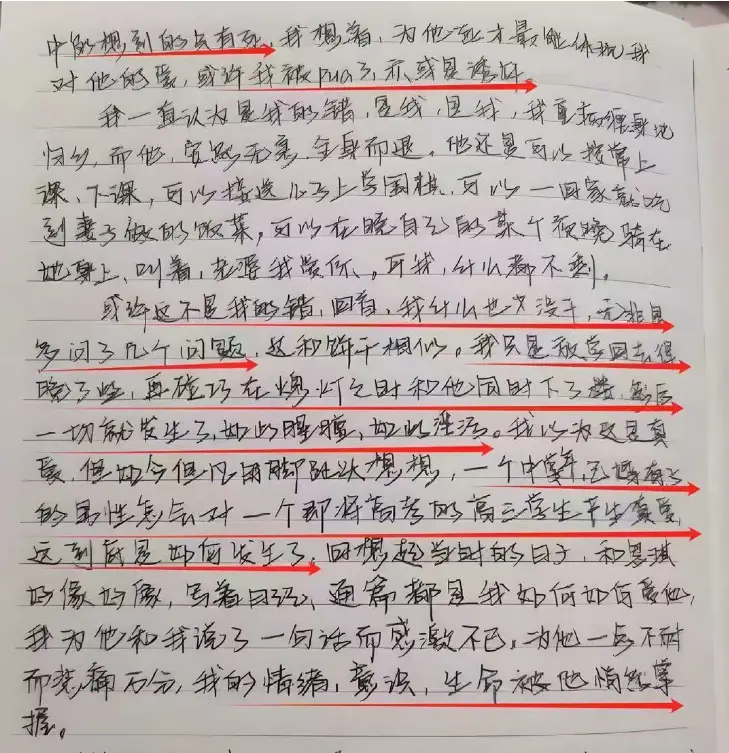 中的想到的只有死，我想着，为他死才最能体现我
对他的爱，或许我被pua了，亦或是诱奸。
我一直认为是我的错，是我，是我，我重病缠身地
归乡，而他，安然无恙，全身而退，他还是可以按常上
课、下课，可以接送儿子上学围棋，可以一回家就吃
到妻子做的饭菜，可以在晚自习的某个夜晚骑在
她身上、叫着，老婆我爱你、，可我，什么都不剩。
或许这不是我的错，回首，我什么也没干，无非是
多问了几个问题，这和饼干相似。我只是放学回去得
晚了些，再碰巧在熄灯之时和他同时下了楼，然后
一切就发生了，如此腥膻，如此淫污。我以为这是真
爱，但如今但凡用脚趾头想想，一个中年、已婚有子
的男性怎会对一个即将高考的高三学生产生真爱
这到底是如何发生了，回想起当时的日子，和思琪
好像好像，写着日记，通篇都是我如何如何爱他，
我为他和我说了一句话而感激不已，为他一点不耐
而悲痛万分，我的情绪，意识，生命被他悄然掌
握。